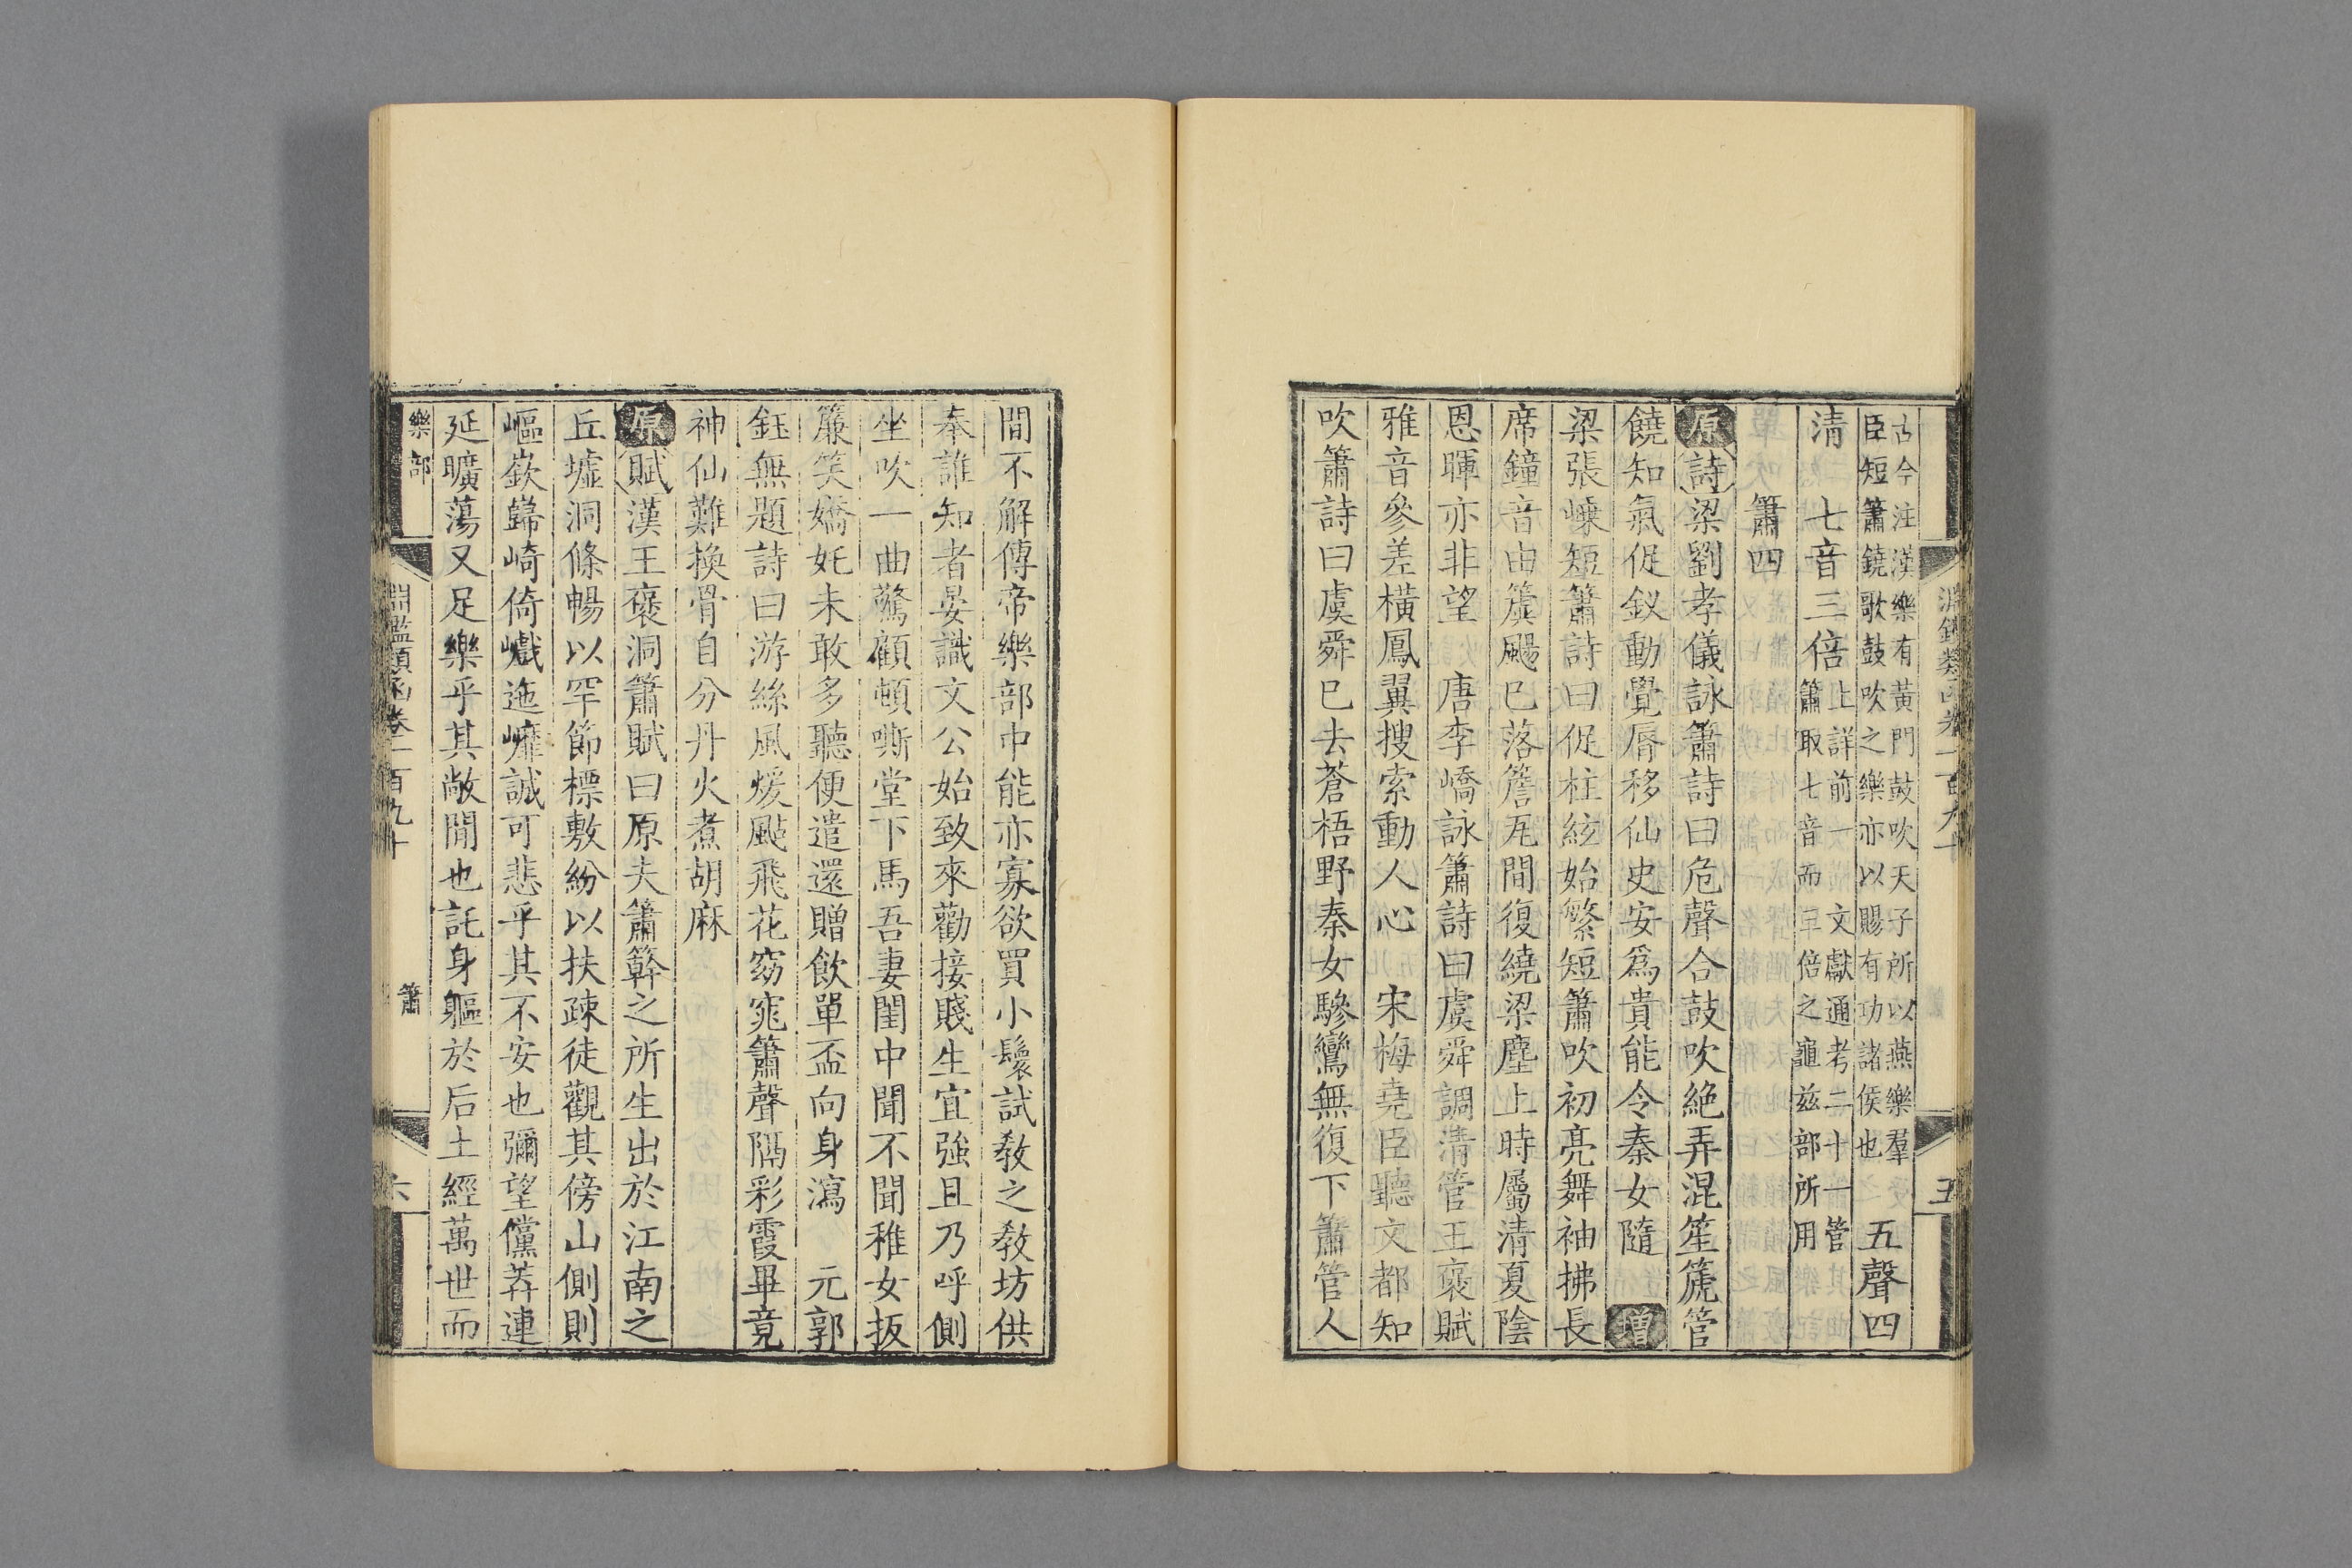 古今注漢樂有黃門鼓吹天子所以燕樂羣
臣短簫鐃歌鼓吹之樂亦以賜有功諸侯也
五聲四
清
七音三倍
上詳前一文獻通考二十一管
簫取七音而三倍之龜兹部所用
簫四
原詩梁劉孝儀詠簫詩曰危聲合鼓吹絶弄混笙篪管
饒知氣促釵動覺脣移仙史安爲貴能令秦女隨 增
梁張嵊短簫詩曰促柱絃始繁短簫吹初亮舞袖拂長
席鐘音由簴颺巳落簷瓦間復繞梁塵上時屬清夏陰
恩暉亦非望 唐李嶠詠簫詩曰虞舜調清管王褒賦
雅音參差橫鳳翼搜索動人心 宋梅堯臣聽文都知
吹簫詩曰虞舜巳去蒼梧野秦女驂鸞無復下簫管人
五
間不解傳帝樂部中能亦寡欲買小鬟試敎之敎坊供
奉誰知者晏識文公始致來勸接賤生宜強且乃呼側
坐吹一曲驚顧頓嘶堂下馬吾妻閨中聞不聞稚女扳
簾笑嬌妊未敢多聽便遣還贈飲單盃向身瀉 元郭
鈺無題詩曰游絲風煖颭飛花窈窕簫聲隔彩霞畢竟
神仙難換骨自分丹火煮胡麻
原賦漢王褒洞簫賦曰原夫簫簳之所生出於江南之
丘墟洞條暢以罕節標敷紛以扶疎徒觀其傍山側則
嶇嶔巋崎倚巇迤㠧誠可悲乎其不安也彌望儻莽連
延曠蕩又足樂乎其敞閒也託身軀於后土經萬世而
樂部
淵鑑類函卷一百九十
簫
六